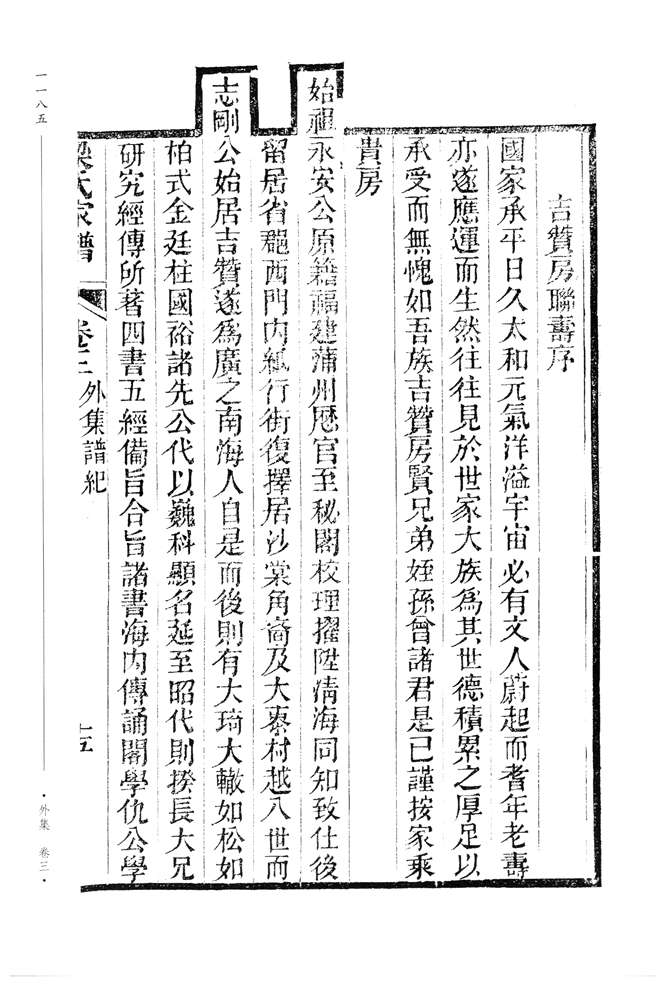 吉贊房聯壽序
國家承平日久太和元氣洋溢宇宙必有文人蔚起而耆年老壽
亦遂應運而生然往往見於世家大族為其世德積累之厚足以
承受而無愧如吾族吉贊房賢兄弟姪孫曾諸君是已謹按家乘
貴房
始祖永安公原籍福建蒲州歷官至秘閣校理擢陞清海同知致仕後
留居省郡西門內紙行街復擇居沙棠角裔及大泰村越八世而
志剛公始居吉贊遂為廣之南海人自是而後則有大琦大轍如松如
柏式金廷柱國裕諸先公代以巍科顯名延至昭代則揆長大兄
研究經傳所著四書五經備旨合旨諸書海內傳誦閣學仇公學
梁氏家譜 卷三 外集譜紀 十五
一一八五
·外集 卷三·